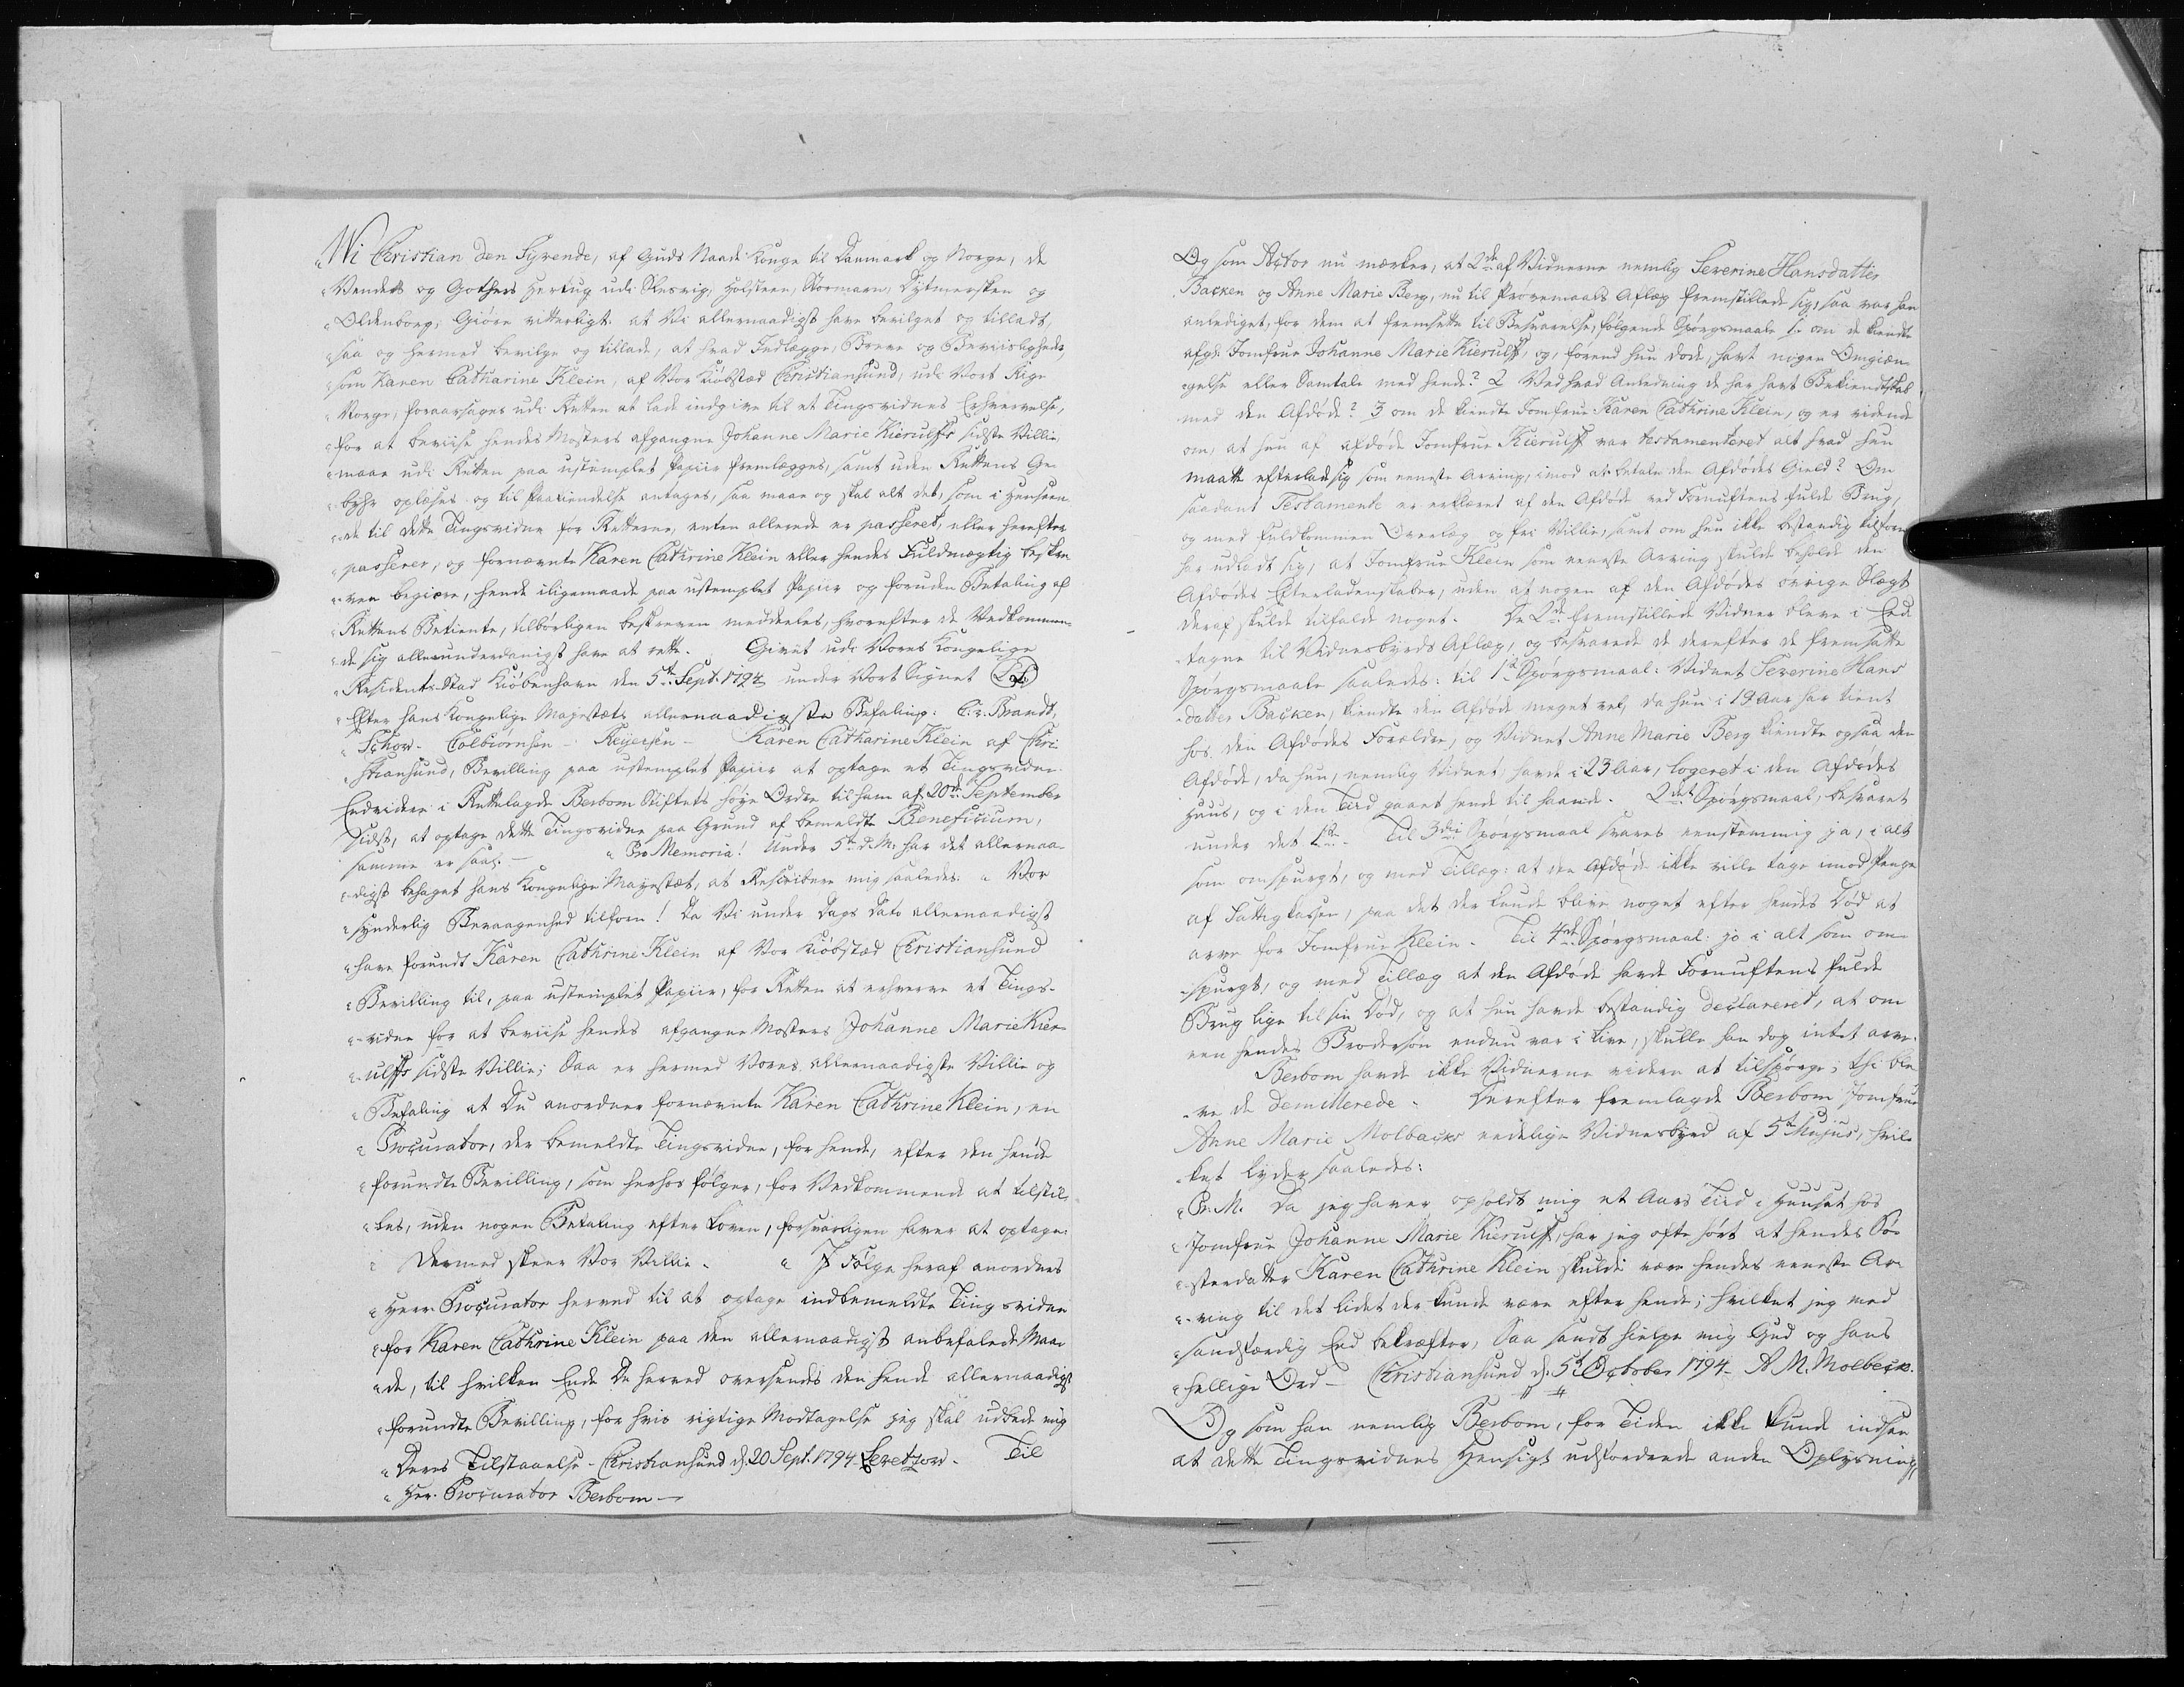 "Wi Christian den Syvende, af Guds Naade Konge til Danmark og Norge, de
"Vendes og Gothers Hertug udi Slesvig, Holsteen, Stormarn, Dytmersken og
"Oldenborg; Giøre vitterligt: at Vi allernaadigst have bevilget og tilladt,
"saa og hermed bevilge og tillade, at hvad Indlægge, Breve og Beviisligheder
"som Karen Catharine Klein, af Vor Kiøbstæd Christiansund, udi Vort Rige
"Norge, foraarsages udi Retten at lade indgive til et Tingsvidnes Erhvervelse,
"for at beviise hendes Mosters afgangne Johanne Marie Kierulffs sidste Villie,
"maae udi Retten paa ustemplet Papiir fremlægges, samt uden Rettens Ge-
"byhr oplæses og til Paakiendelse antages, saa maae og skal alt det, som i Henseen-
"de til dette Tingsvidne for Retterne, enten allerede er passeret, eller herefter
"passerer, og fornævnte Karen Cathrine Klein eller hendes Fuldmægtig beskre-
"ven begiære, hende iligemaade paa ustemplet Papiir og foruden Betaling af
"Rettens Betiente, tilbørligen beskreven meddeeles, hvorefter de Vedkommen-
"de sig allerunderdanigst have at rette. Givet udi Vores Kongelige
"Residents-Stad Kiøbenhavn den 5te Sept. 1794 under Vort Signet (LS)
"Efter hans Kongelige Majestæts allernaadigste Befaling. C: v: Brandt,
"Schow - Colbiørnsen - Reyersen - Karen Catharine Klein af Chri-
"stiansund, Bevilling paa ustemplet Papiir at optage et Tingsvidne.
Endvidere i Rettelagde Berbom Stiftets høye Ordre til ham af 20de September
sidst, at optage dette Tingsvidne paa Grund af bemeldte Beneficium,
samme er saa: - "Pro Memoria! Under 5te d. M. har det allernaa-
"digst behaget hans Kongelige Mayestæt, at Rescribere mig saaledes: "Vor
"synderlig Bevaagenhed tilforn! Da Vi under Dags Dato allernaadigst
"have forundt Karen Cathrine Klein af Vor Kiøbstæd Christiansund
"Bevilling til, paa ustemplet Papiir, for Retten at erhverve et Tings-
"vidne for at beviise hendes afgangne Mosters Johanne Marie Kier-
"ulffs sidste Villie; Saa er hermed Vores allernaadigste Villie og
"Befaling at Du anordner fornævnte Karen Cathrine Klein, en
"Procurator, der bemeldte Tingsvidne, for hende, efter den hende
"forundte Bevilling, som herhos følger, for Vedkommende at tilstil-
"les, uden nogen Betaling efter Loven, forsvarligen haver at optage:
"Dermed skeer Vor Villie. "I Følge heraf anordnes
"Herr Procurator herved til at optage indbemeldte Tingsvidne
"for Karen Cathrine Klein paa den allernaadigst anbefalede Maa-
"de, til hvilken Ende De herved oversendes den hende allernaadigst
"forundte Bevilling, for hvis rigtige Modtagelse jeg skal udbede mig
"Deres Tilstaaelse - Christiansund d. 20 Sept. 1794 Levetzow. Til
"Hr. Procurator Berbom -
Og som Actor nu mærker, at 2de af Vidnerne nemlig Severine Hansdatter
Backen og Anne Marie Berg, nu til Prøvemaals Aflæg fremstillede sig, saa var han
anlediget, for dem at fremsette til Besvarelse, følgende Spørgsmaale 1. om de kiendte
afgde Jomfrue Johanne Marie Kierulff, og, forend hun døde, havt nogen Omgiæn-
gelse eller Samtale med hende? 2 Ved hvad Anledning de har havt Bekiendtskab
med den Afdøde? 3 om de kiendte Jomfrue Karen Cathrine Klein, og er vidende
om, at hun af afdøde Jomfrue Kierulff var testamenteret alt hvad hun
maatte efterlade sig som eeneste Arving, imod at betale den Afdødes Gield? Om
saadant Testamente er erklæret af den Afdøde ved Fornuftens fulde Brug,
og med fuldkommen Overlæg og frie Villie, samt om hun ikke bestandig tilforn
har udladt sig, at Jomfrue Klein som eeneste Arving skulde beholde den
Afdødes Efterladenskaber, uden at nogen af den Afdødes øvrige Slægt
deraf skulde tilfalde noget. De 2de fremstillede Vidner bleve i Eed
tagne til Vidnesbyrds Aflæg, og besvarede de derefter de fremsatte
Spørgsmaale saaledes: til 1te Spørgsmaal: Vidnet Severine Hans-
datter Backen, kiendte den Afdøde meget vel, da hun i 19 Aar har tient
hos den Afdødes Forældre, og Vidnet Anne Marie Berg kiendte ogsaa den
Afdøde, da hun, nemlig Vidnet, havde i 23 Aar, logeret i den Afdødes
Huus, og i den Tiid gaaet hende til haande. 2det Spørgsmaal, besvaret
under det 1te. Til 3die Spørgsmaal svares eenstemmig ja, i alt
som omspurgt, og med Tillæg: at den Afdøde ikke ville tage imod Penge
af Fattigkassen, paa det der kunde blive noget efter hendes Død at
arve for Jomfrue Klein. Til 4de Spørgsmaal: jo i alt som om-
spurgt, og med Tillæg at den Afdøde havde Fornuftens fulde
Brug lige til sin Død, og at hun havde bestandig declareret, at om
een hendes Brodersøn endnu var i Live, skulle han dog intet arve.
Berbom havde ikke Vidnerne videre at tilspørge; thi ble-
ve de demitterede. Derefter fremlagde Berbom Jomfrue
Anne Marie Molbachs eedelige Vidnesbyrd af 5te hujus, hvil-
ket lyder saaledes:
"P. M. Da jeg haver opholdt mig et Aars Tiid i Huuset hos
"Jomfrue Johanne Marie Kierulff, har jeg ofte hørt at hendes Sø-
"sterdatter Karen Cathrine Klein skulde være hendes eeneste Ar-
"ving til det lidet der kunde være efter hende; hvilket jeg med
"sandfærdig Eed bekræfter, Saa sandt hielpe mig Gud og hans
"hellige Ord - Christiansund d. 5te October 1794. A. M. Molbech.
Og som han nemlig Berbom, for Tiden ikke kunde indsee
at dette Tingsvidnes Hensigt udfordrede anden Oplysning,